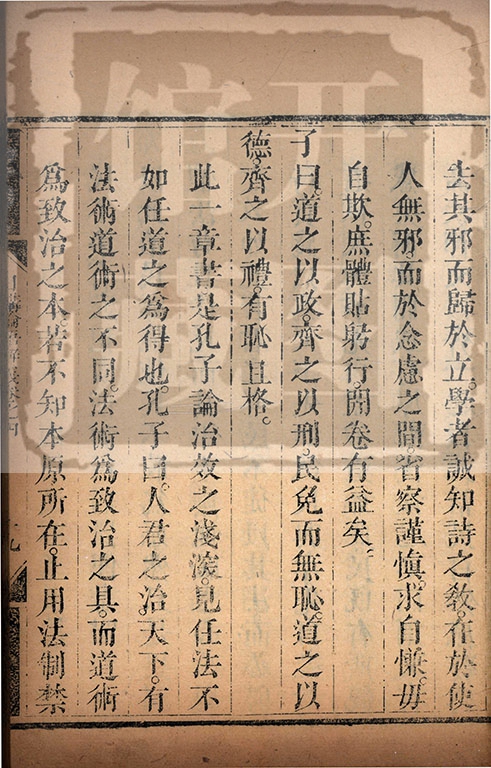 去其邪而歸於立。學者誠知詩之敎。在於使
人無邪。而於念慮之間。省察謹愼。求自慊。毋
自欺。庶體貼躬行。開卷有益矣。
子曰。道之以政。齊之以刑。民免而無恥。道之以
德。齊之以禮。有恥且格。
此一章書是孔子論治效之淺深。見任法不
如任道之爲得也。孔子曰。人君之治。天下。有
法術道術之不同。法術爲致治之具。而道術
爲致治之本。若不知本原所在。止用法制禁